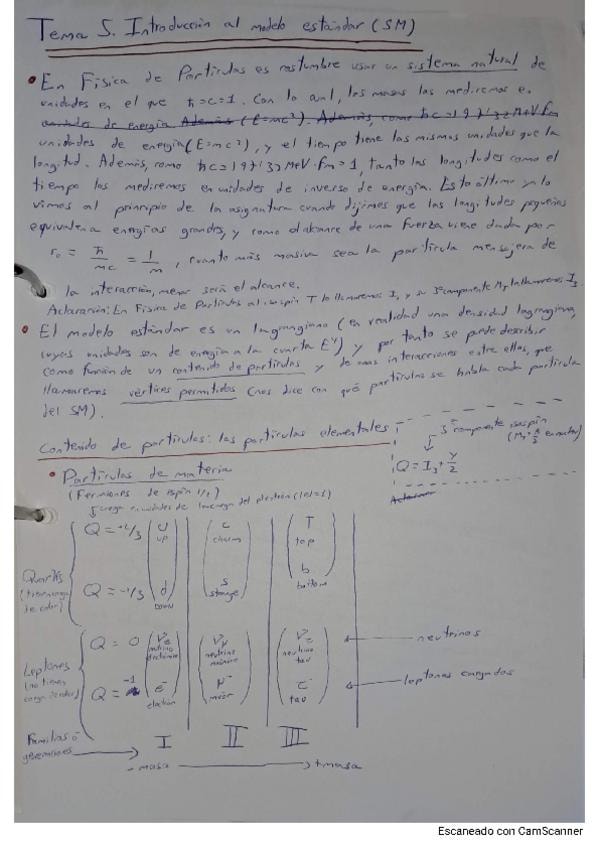 Tema 5. Introducción al modelo estándar (SM)
• En Física de Partículas es costumbre usar un sistema natural de
unidades en el que ħ=c=1. Con lo cual, las masas las mediremos en
unidades de energía Además (E=mc²). Además, como ħc=197'32 MeV fm
unidades de energía (E=mc²), y el tiempo tiene las mismas unidades que la
longitud. Además, como ħc=197'32 MeV·fm=1, tanto las longitudes como el
tiempo las mediremos en unidades de inverso de energía. Esto último ya lo
vimos al principio de la asignatura cuando dijimos que las longitudes pequeñas
equivalen a energías grandes, y como el alcance de una fuerza viene dada por
r₀ = ħ/mc = 1/m, cuanto más masiva sea la partícula mensajera de
la interacción, menor será el alcance.
Aclaración: En Física de Partículas al isospín T lo llamaremos I, y su 3ª componente M_T la llamaremos I₃
• El modelo estándar es un lagrangiano (en realidad una densidad lagrangiana,
cuyas unidades son de energía a la cuarta E⁴) y por tanto se puede describir
como función de un contenido de partículas y de unas interacciones entre ellas, que
llamaremos vértices permitidos (nos dice con qué partículas se habla cada partícula
del SM).
Contenido de partículas: las partículas elementales
3ª componente isospín
Q = I₃ + Y/2
• Partículas de materia
(Fermiones de espín 1/2)
carga en unidades de la carga del electrón (|e|=1)
Quarks
(tienen carga
de color)
Q = +2/3
u
up
c
charm
T
top
Q = -1/3
d
down
s
strange
b
bottom
Leptones
(no tienen
carga de color)
Q = 0
νe
neutrino
electrónico
νμ
neutrino
muónico
ντ
neutrino
tau
neutrinos
Q = -1
e⁻
electrón
μ⁻
muón
τ⁻
tau
leptones cargados
Familias ó
generaciones
I II III
- masa + masa
Escaneado con CamScanner